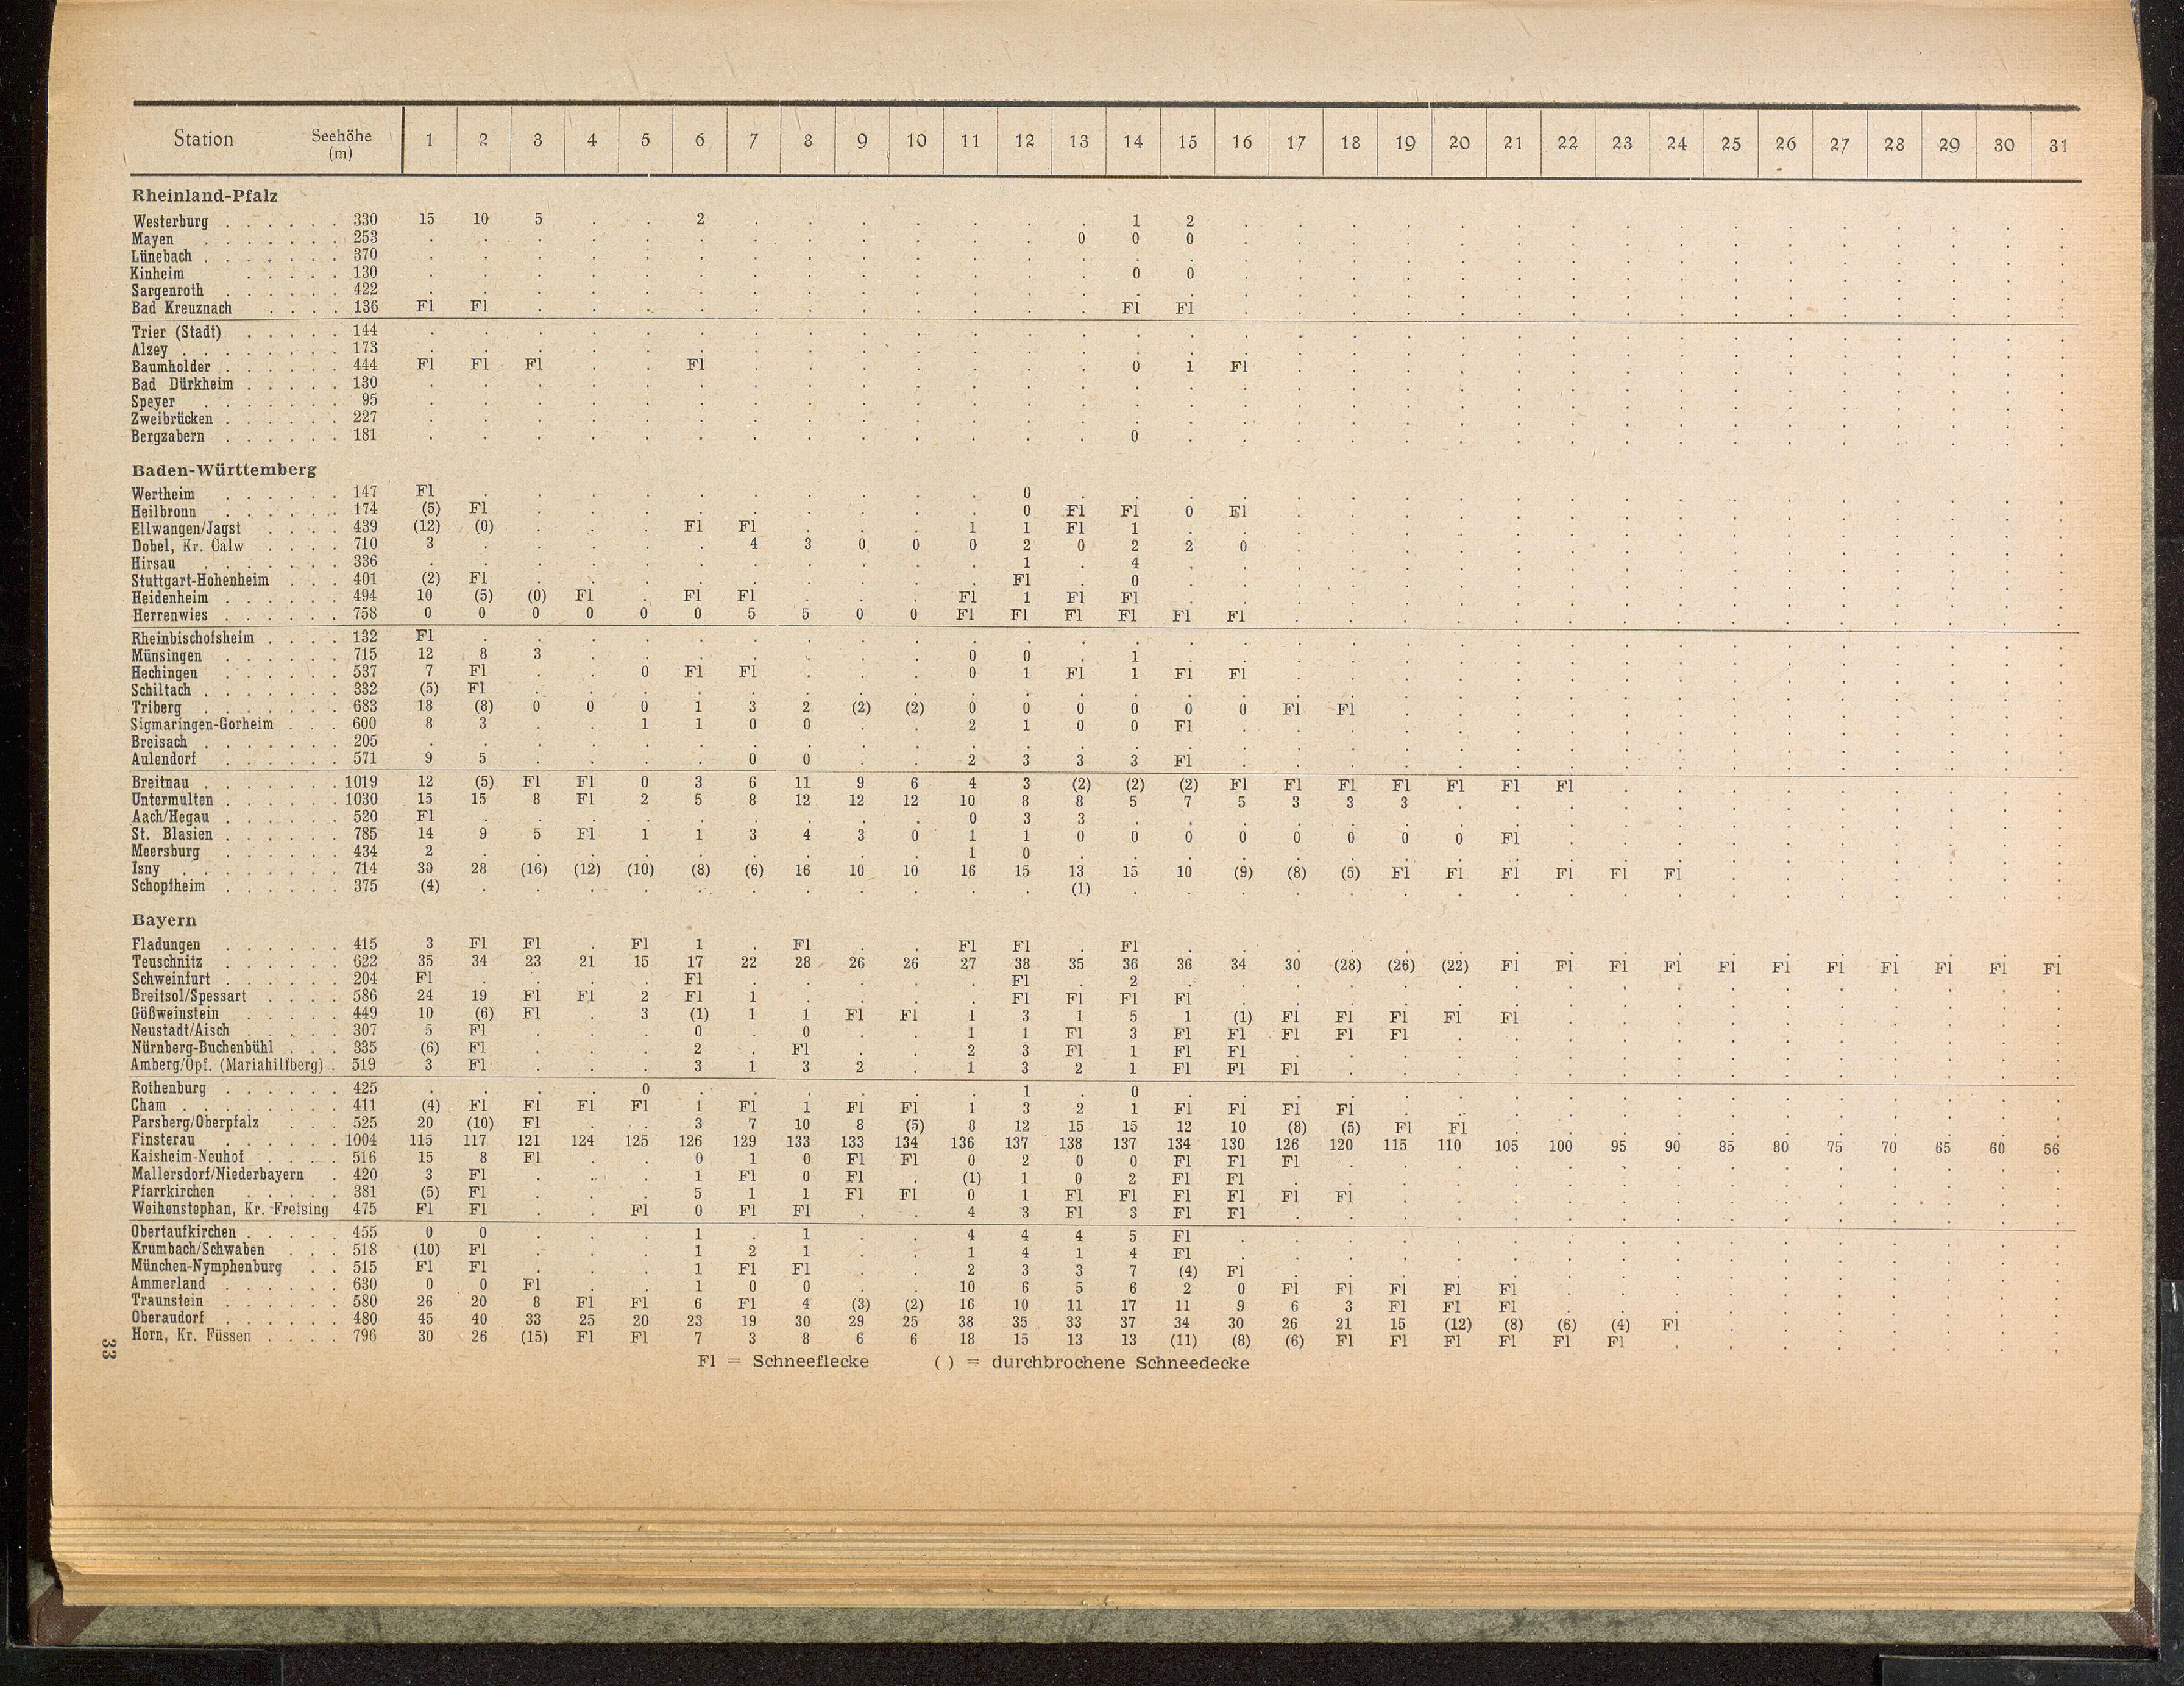 Station Seehöhe (m) 1 2 3 4 5 6 7 8 9 10 11 12 13 14 15 16 17 18 19 20 21 22 23 24 25 26 27 28 29 30 31
Rheinland-Pfalz
Westerburg . . . . . . 330 15 10 5 . . 2 . . . . . . . 1 2 . . . . . . . . . . . . . . . .
Mayen . . . . . . . 253 . . . . . . . . . . . . 0 0 0 . . . . . . . . . . . . . . . .
Lünebach . . . . . . . 370 . . . . . . . . . . . . . . . . . . . . . . . . . . . . . . .
Kinheim . . . . . 130 . . . . . . . . . . . . . 0 0 . . . . . . . . . . . . . . . .
Sargenroth . . . . . . 422 . . . . . . . . . . . . . . . . . . . . . . . . . . . . . . .
Bad Kreuznach . . . . 136 Fl Fl . . . . . . . . . . . Fl Fl . . . . . . . . . . . . . . . .
Trier (Stadt) . . . . . 144 . . . . . . . . . . . . . . . . . . . . . . . . . . . . . . .
Alzey . . . . . . . . 173 . . . . . . . . . . . . . . . . . . . . . . . . . . . . . . .
Baumholder . . . . . . 444 Fl Fl Fl . . Fl . . . . . . . 0 1 Fl . . . . . . . . . . . . . . .
Bad Dürkheim . . . . . 130 . . . . . . . . . . . . . . . . . . . . . . . . . . . . . . .
Speyer . . . . . . . 95 . . . . . . . . . . . . . . . . . . . . . . . . . . . . . . .
Zweibrücken . . . . . . 227 . . . . . . . . . . . . . . . . . . . . . . . . . . . . . . .
Bergzabern . . . . . . 181 . . . . . . . . . . . . . 0 . . . . . . . . . . . . . . . . .
Baden-Württemberg
Wertheim . . . . . . 147 Fl . . . . . . . . . . 0 . . . . . . . . . . . . . . . . . . .
Heilbronn . . . . . . 174 (5) Fl . . . . . . . . . 0 Fl Fl 0 Fl . . . . . . . . . . . . . . .
Ellwangen/Jagst . . . . 439 (12) (0) . . . Fl Fl . . . 1 1 Fl 1 . . . . . . . . . . . . . . . . .
Dobel, Kr. Calw . . . . 710 3 . . . . . 4 3 0 0 0 2 0 2 2 0 . . . . . . . . . . . . . . .
Hirsau . . . . . . . 336 . . . . . . . . . . . 1 . 4 . . . . . . . . . . . . . . . . .
Stuttgart-Hohenheim . . . 401 (2) Fl . . . . . . . . . Fl . 0 . . . . . . . . . . . . . . . . .
Heidenheim . . . . . . 494 10 (5) (0) Fl . Fl Fl . . . Fl 1 Fl Fl . . . . . . . . . . . . . . . . .
Herrenwies . . . . . . 758 0 0 0 0 0 0 5 5 0 0 Fl Fl Fl Fl Fl Fl . . . . . . . . . . . . . . .
Rheinbischofsheim . . . . 132 Fl . . . . . . . . . . . . . . . . . . . . . . . . . . . . . .
Münsingen . . . . . . 715 12 8 3 . . . . . . . 0 0 . 1 . . . . . . . . . . . . . . . . .
Hechingen . . . . . . 537 7 Fl . . 0 Fl Fl . . . 0 1 Fl 1 Fl Fl . . . . . . . . . . . . . . .
Schiltach . . . . . . . 332 (5) Fl . . . . . . . . . . . . . . . . . . . . . . . . . . . . .
Triberg . . . . . . . 683 18 (8) 0 0 0 1 3 2 (2) (2) 0 0 0 0 0 0 Fl Fl . . . . . . . . . . . . .
Sigmaringen-Gorheim . . . 600 8 3 . . 1 1 0 0 . . 2 1 0 0 Fl . . . . . . . . . . . . . . . .
Breisach . . . . . . . 205 . . . . . . . . . . . . . . . . . . . . . . . . . . . . . . .
Aulendorf . . . . . . 571 9 5 . . . . 0 0 . . 2 3 3 3 Fl . . . . . . . . . . . . . . . .
Breitnau . . . . . . . 1019 12 (5) Fl Fl 0 3 6 11 9 6 4 3 (2) (2) (2) Fl Fl Fl Fl Fl Fl Fl . . . . . . . . .
Untermulten . . . . . . 1030 15 15 8 Fl 2 5 8 12 12 12 10 8 8 5 7 5 3 3 3 . . . . . . . . . . . .
Aach/Hegau . . . . . . 520 Fl . . . . . . . . . 0 3 3 . . . . . . . . . . . . . . . . . .
St. Blasien . . . . . . 785 14 9 5 Fl 1 1 3 4 3 0 1 1 0 0 0 0 0 0 0 0 Fl . . . . . . . . . .
Meersburg . . . . . . 434 2 . . . . . . . . . 1 0 . . . . . . . . . . . . . . . . . . .
Isny . . . . . . . . 714 30 28 (16) (12) (10) (8) (6) 16 10 10 16 15 13 15 10 (9) (8) (5) Fl Fl Fl Fl Fl Fl . . . . . . .
Schopfheim . . . . . . 375 (4) . . . . . . . . . . . (1) . . . . . . . . . . . . . . . . . .
Bayern
Fladungen . . . . . . 415 3 Fl Fl . Fl 1 . Fl . . Fl Fl . Fl . . . . . . . . . . . . . . . . .
Teuschnitz . . . . . . 622 35 34 23 21 15 17 22 28 26 26 27 38 35 36 36 34 30 (28) (26) (22) Fl Fl Fl Fl Fl Fl Fl Fl Fl Fl Fl
Schweinfurt . . . . . . 204 Fl . . . . Fl . . . . . Fl . 2 . . . . . . . . . . . . . . . . .
Breitsol/Spessart . . . . 586 24 19 Fl Fl 2 Fl 1 . . . . Fl Fl Fl Fl . . . . . . . . . . . . . . . .
Gößweinstein . . . . . 449 10 (6) Fl . 3 (1) 1 1 Fl Fl 1 3 1 5 1 (1) Fl Fl Fl Fl Fl . . . . . . . . . .
Neustadt/Aisch . . . . . 307 5 Fl . . . 0 . 0 . . 1 1 Fl 3 Fl Fl Fl Fl Fl . . . . . . . . . . . .
Nürnberg-Buchenbühl . . . 335 (6) Fl . . . 2 . Fl . . 2 3 Fl 1 Fl Fl . . . . . . . . . . . . . . .
Amberg/Opf. (Mariahilfberg) . 519 3 Fl . . . 3 1 3 2 . 1 3 2 1 Fl Fl Fl . . . . . . . . . . . . . .
Rothenburg . . . . . . 425 . . . . 0 . . . . . . 1 . 0 . . . . . . . . . . . . . . . . .
Cham . . . . . . . . 411 (4) Fl Fl Fl Fl 1 Fl 1 Fl Fl 1 3 2 1 Fl Fl Fl Fl . . . . . . . . . . . . .
Parsberg/Oberpfalz . . . 525 20 (10) Fl . . 3 7 10 8 (5) 8 12 15 15 12 10 (8) (5) Fl Fl . . . . . . . . . . .
Finsterau . . . . . . 1004 115 117 121 124 125 126 129 133 133 134 136 137 138 137 134 130 126 120 115 110 105 100 95 90 85 80 75 70 65 60 56
Kaisheim-Neuhof . . . . 516 15 8 Fl . . 0 1 0 Fl Fl 0 2 0 0 Fl Fl Fl . . . . . . . . . . . . . .
Mallersdorf/Niederbayern . 420 3 Fl . . . 1 Fl 0 Fl . (1) 1 0 2 Fl Fl . . . . . . . . . . . . . . .
Pfarrkirchen . . . . . 381 (5) Fl . . . 5 1 1 Fl Fl 0 1 Fl Fl Fl Fl Fl Fl . . . . . . . . . . . . .
Weihenstephan, Kr. Freising 475 Fl Fl . . Fl 0 Fl Fl . . 4 3 Fl 3 Fl Fl . . . . . . . . . . . . . . .
Obertaufkirchen . . . . . 455 0 0 . . . 1 . 1 . . 4 4 4 5 Fl . . . . . . . . . . . . . . . .
Krumbach/Schwaben . . . 518 (10) Fl . . . 1 2 1 . . 1 4 1 4 Fl . . . . . . . . . . . . . . . .
München-Nymphenburg . . 515 Fl Fl . . . 1 Fl Fl . . 2 3 3 7 (4) Fl . . . . . . . . . . . . . . .
Ammerland . . . . . . 630 0 0 Fl . . 1 0 0 . . 10 6 5 6 2 0 Fl Fl Fl Fl Fl . . . . . . . . . .
Traunstein . . . . . . 580 26 20 8 Fl Fl 6 Fl 4 (3) (2) 16 10 11 17 11 9 6 3 Fl Fl Fl . . . . . . . . . .
Oberaudorf . . . . . . 480 45 40 33 25 20 23 19 30 29 25 38 35 33 37 34 30 26 21 15 (12) (8) (6) (4) Fl . . . . . . .
Horn, Kr. Füssen . . . . 796 30 26 (15) Fl Fl 7 3 8 6 6 18 15 13 13 (11) (8) (6) Fl Fl Fl Fl Fl Fl . . . . . . . .
Fl = Schneeflecke ( ) = durchbrochene Schneedecke
33